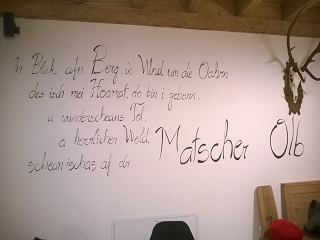 In Blick afn Berg, in Wind um die Oahrn
des isch mei Hoamat, do bin i geborn.
a wunderscheans Tol,
a herrlicher Wold,
scheanischas af dr Matscher Olb